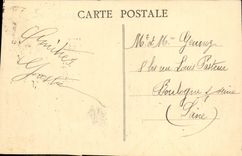 CARTE POSTALE
Amitiés
Mr & Me
8 bis rue Louis Pasteur
Boulogne s/ Seine
(Seine)